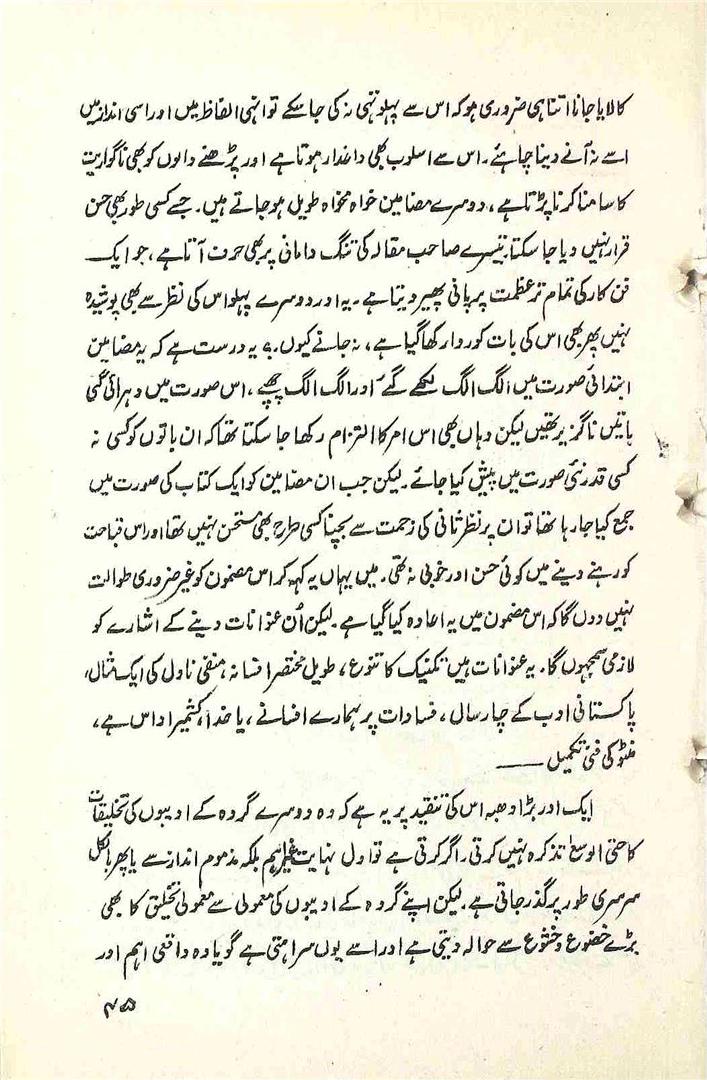 کا لایا جانا اتنا ہی ضروری ہو کہ اس سے پہلو تہی نہ کی جا سکے تو انہی الفاظ میں اور اسی انداز میں
اسے نہ آنے دینا چاہئے۔ اس سے اسلوب بھی داغدار ہوتا ہے اور پڑھنے والوں کو بھی ناگواریت
کا سامنا کرنا پڑتا ہے، دوسرے مضامین خواہ مخواہ طویل ہو جاتے ہیں۔ جسے کسی طور بھی حسن
قرار نہیں دیا جا سکتا۔ تیسرے صاحب مقالہ کی تنگ دامانی پر بھی حرف آتا ہے، جو ایک
فن کار کی تمام تر عظمت پر پانی پھیر دیتا ہے۔ یہ اور دوسرے پہلو اس کی نظر سے بھی پوشیدہ
نہیں پھر بھی اس کی بات کو روا رکھا گیا ہے، نہ جانے کیوں۔ ؟ یہ درست ہے کہ یہ مضامین
ابتدائی صورت میں الگ الگ لکھے گئے اور الگ الگ چھپے، اس صورت میں دہرائی گئی
باتیں ناگزیر تھیں لیکن وہاں بھی اس امر کا التزام رکھا جا سکتا تھا کہ ان باتوں کو کسی نہ
کسی قدر نئی صورت میں پیش کیا جائے۔ لیکن جب ان مضامین کو ایک کتاب کی صورت میں
جمع کیا جا رہا تھا تو ان پر نظر ثانی کی زحمت سے بچنا کسی طرح بھی مستحسن نہیں تھا اور اس قباحت
کو رہنے دینے میں کوئی حسن اور خوبی نہ تھی۔ میں یہاں یہ کہہ کر اس مضمون کو غیر ضروری طوالت
نہیں دوں گا کہ اس مضمون میں یہ اعادہ کیا گیا ہے۔ لیکن اُن عنوانات دینے کے اشارے کو
لازمی سمجھوں گا۔ یہ عنوانات ہیں تکنیک کا تنوع، طویل مختصر افسانہ، منفی ناول کی ایک مثال،
پاکستانی ادب کے چار سال، فسادات پر ہمارے افسانے، یا خدا، کشمیر اداس ہے،
منٹو کی فنی تکمیل ——
ایک اور بڑا دھبہ اس کی تنقید پر یہ ہے کہ وہ دوسرے گروہ کے ادیبوں کی تخلیقات
کا حتی الوسع تذکرہ نہیں کرتی۔ اگر کرتی ہے تو اول نہایت غیر اہم بلکہ مذموم انداز سے یا پھر بالکل
سرسری طور پر گذر جاتی ہے۔ لیکن اپنے گروہ کے ادیبوں کی معمولی سے معمولی تخلیق کا بھی
بڑے خضوع و خشوع سے حوالہ دیتی ہے اور اسے یوں سراہتی ہے گویا وہ واقعی اہم اور